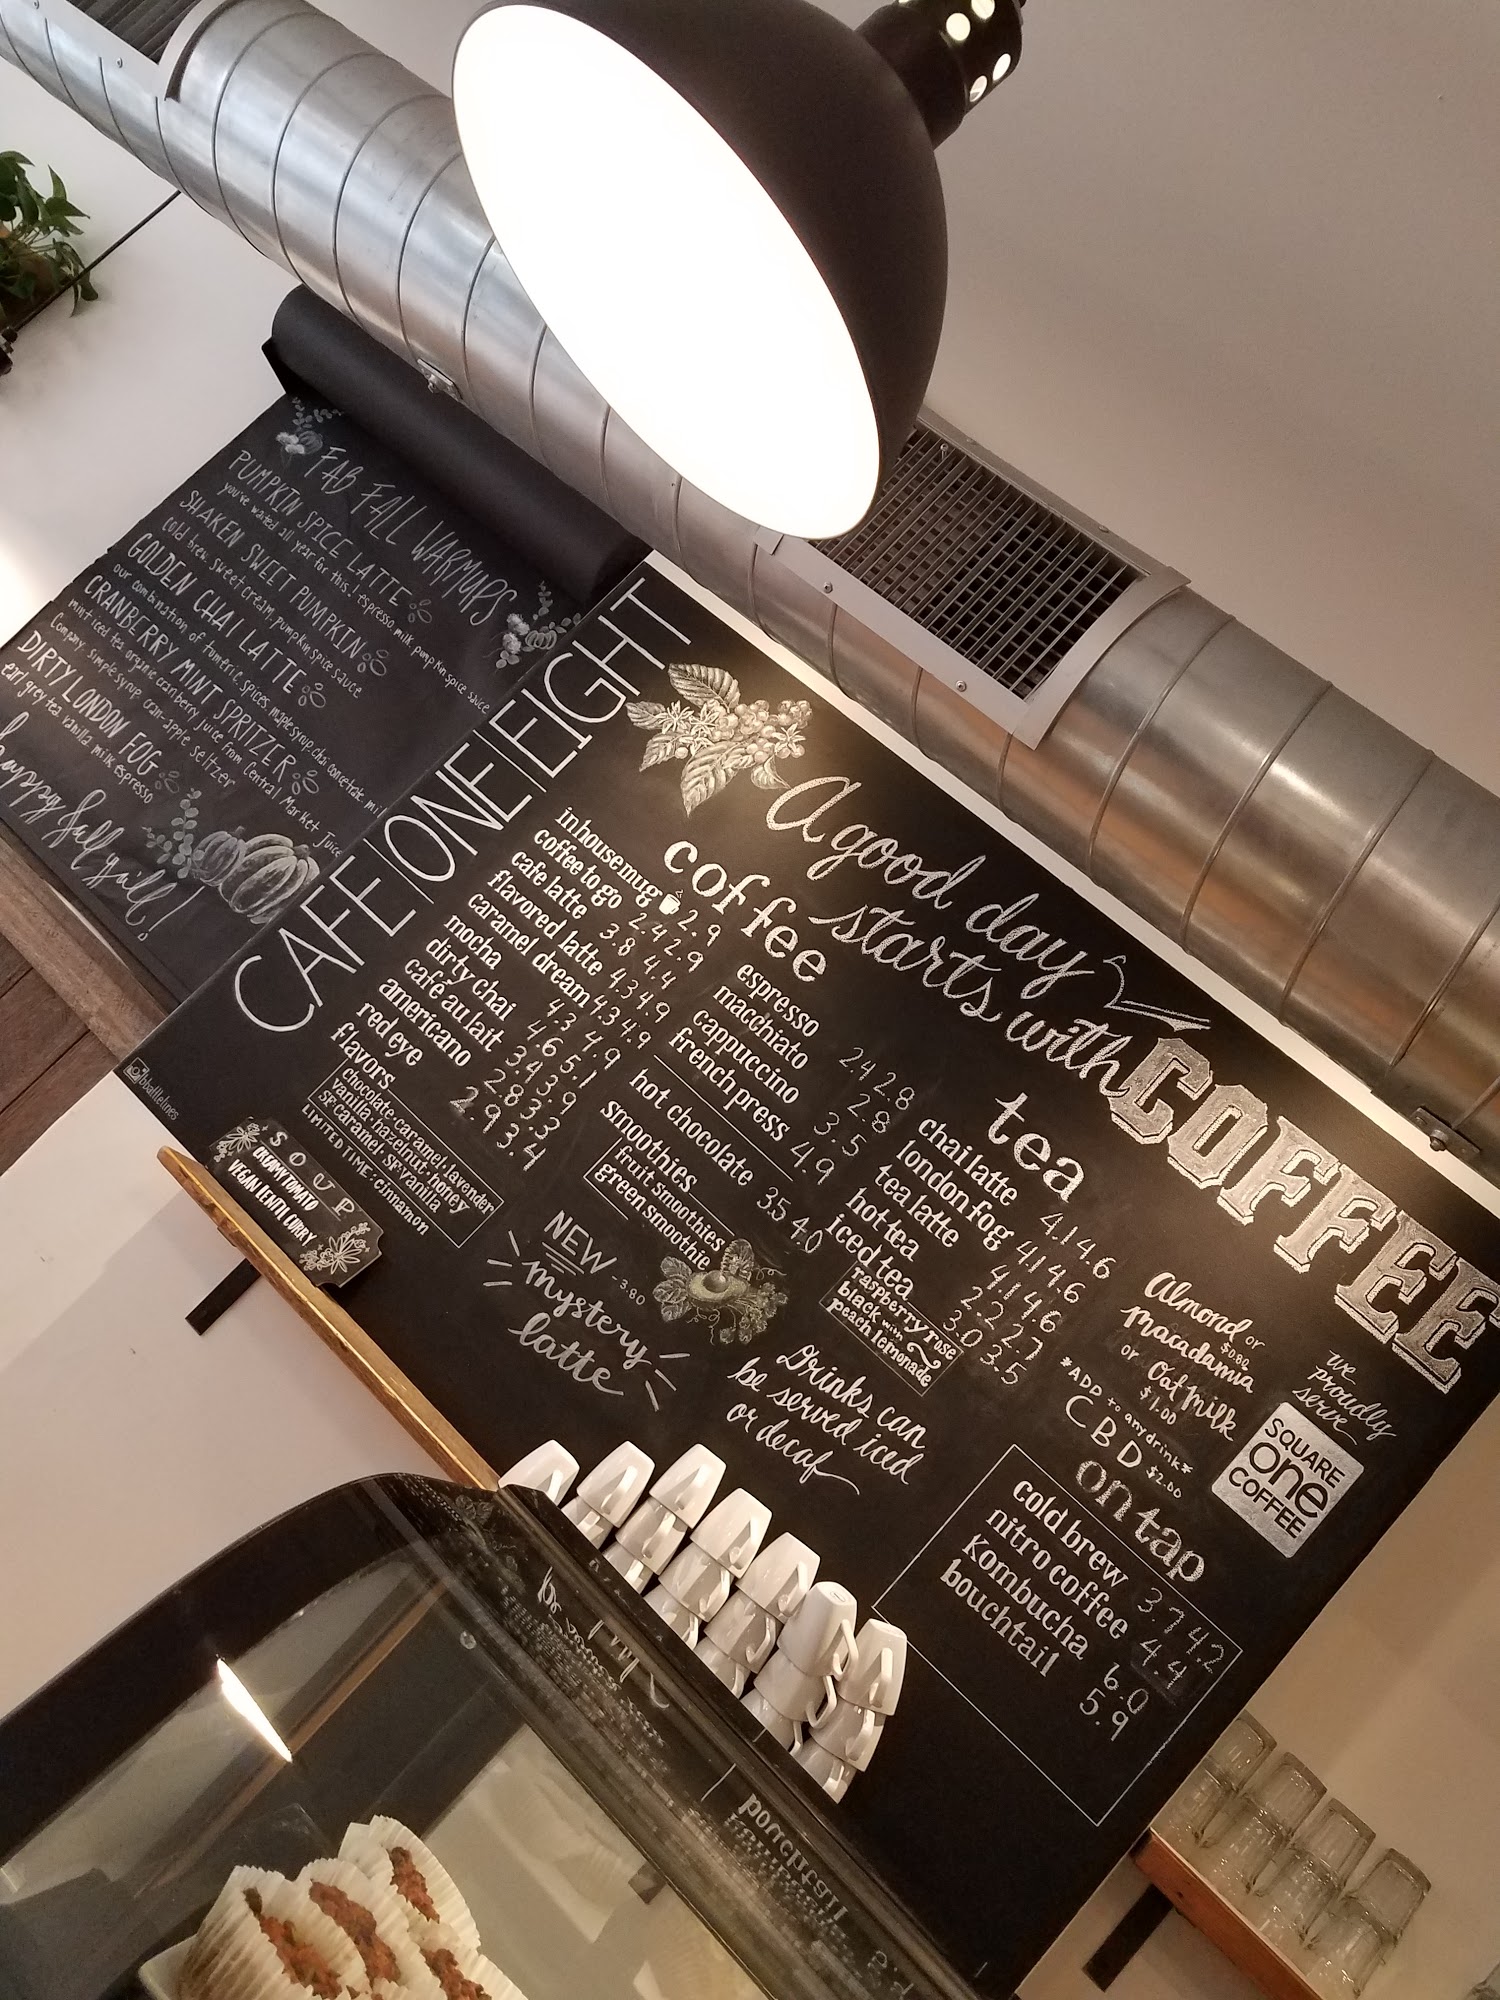 FAB FALL WARMUPS
PUMPKIN SPICE LATTE
you've waited all year for this! espresso, milk, pumpkin spice sauce
SHAKEN SWEET PUMPKIN
cold brew, sweet cream, pumpkin spice sauce
GOLDEN CHAI LATTE
our combination of tumeric, spices, maple syrup, chai concetrate, mil
CRANBERRY MINT SPRITZER
mint iced tea, organic cranberry juice from Central Market Juice
Company, simple syrup, cran-apple seltzer
DIRTY LONDON FOG
earl grey tea, vanilla, milk, espresso
happy fall y'all!
CAFE|ONE|EIGHT
A good day
starts with
COFFEE
coffee
inhouse mug 2.9
coffee to go 2.4 2.9
cafe latte 3.8 4.4
flavored latte 4.3 4.9
caramel dream 4.3 4.9
mocha 4.3 4.9
dirty chai 4.6 5.1
café au lait 3.4 3.9
americano 2.8 3.3
red eye 2.9 3.4
flavors
chocolate·caramel·lavender
vanilla·hazelnut·honey
SF caramel·SF vanilla
LIMITED TIME: cinnamon
espresso 2.4 2.8
macchiato 2.8
cappuccino 3.5
french press 4.9
hot chocolate 3.5 4.0
smoothies
fruit smoothies
green smoothie
NEW -3.80
mystery
latte
tea
chai latte 4.1 4.6
london fog 4.1 4.6
tea latte 4.1 4.6
hot tea 2.2 2.7
iced tea 3.0 3.5
raspberry rose
black with
peach lemonade
Drinks can
be served iced
or decaf
Almond or
$0.80
Macadamia
or Oat Milk
$1.00
*ADD to any drink*
CBD $2.00
on tap
cold brew 3.7 4.2
nitro coffee 4.4
Kombucha 6.0
bouchtail 5.9
we
proudly
serve
SQUARE
one
COFFEE
SOUP
CREAMY TOMATO
VEGAN LENTIL CURRY